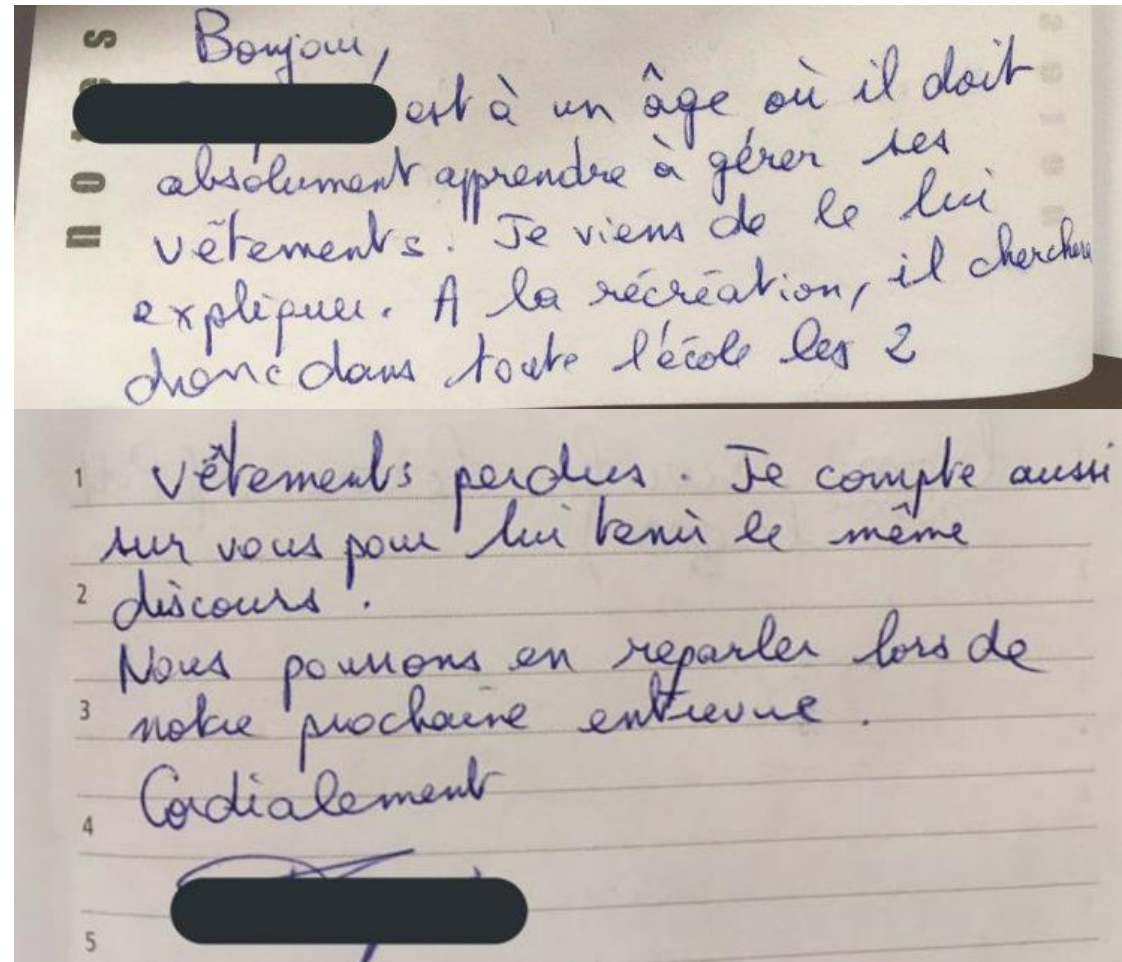 notes
Bonjour,
est à un âge où il doit
absolument apprendre à gérer ses
vêtements. Je viens de le lui
expliquer. A la récréation, il cherchera
donc dans toute l'école les 2
1 vêtements perdus. Je compte aussi
sur vous pour lui tenir le même
2 discours.
Nous pouvons en reparler lors de
3 notre prochaine entrevue.
Cordialement
4
5